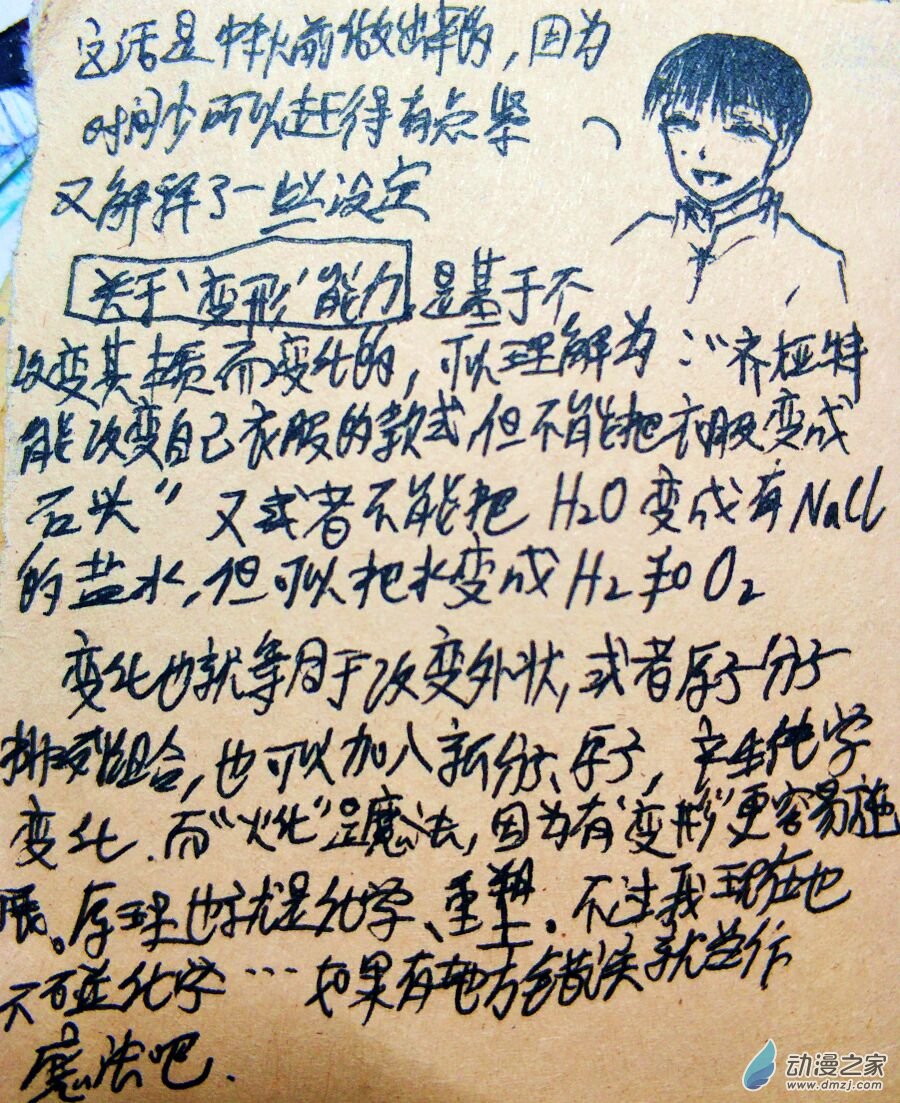 这话是中秋前做出来的，因为
时间少所以赶得有点紧
又解释了一些设定
关于'变形'能力 是基于不
改变其本质而变化的，可以理解为："齐桠特
能改变自己衣服的款式，但不能把衣服变成
石头" 又或者不能把 H2O 变成有 NaCl
的盐水，但可以把水变成 H2和O2
变化也就等同于改变外状，或者原子分子
排列组合，也可以加入新分子、原子，产生化学
变化．而"火化"是魔法，因为有'变形'更容易施
展。原理也就是化学、重塑。不过我现在也
不碰化学…如果有地方错误就当作
魔法吧．
动漫之家
www.dmzj.com